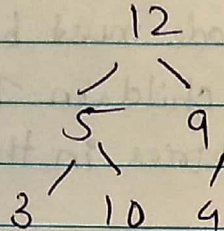 12
5 9
3 10 4